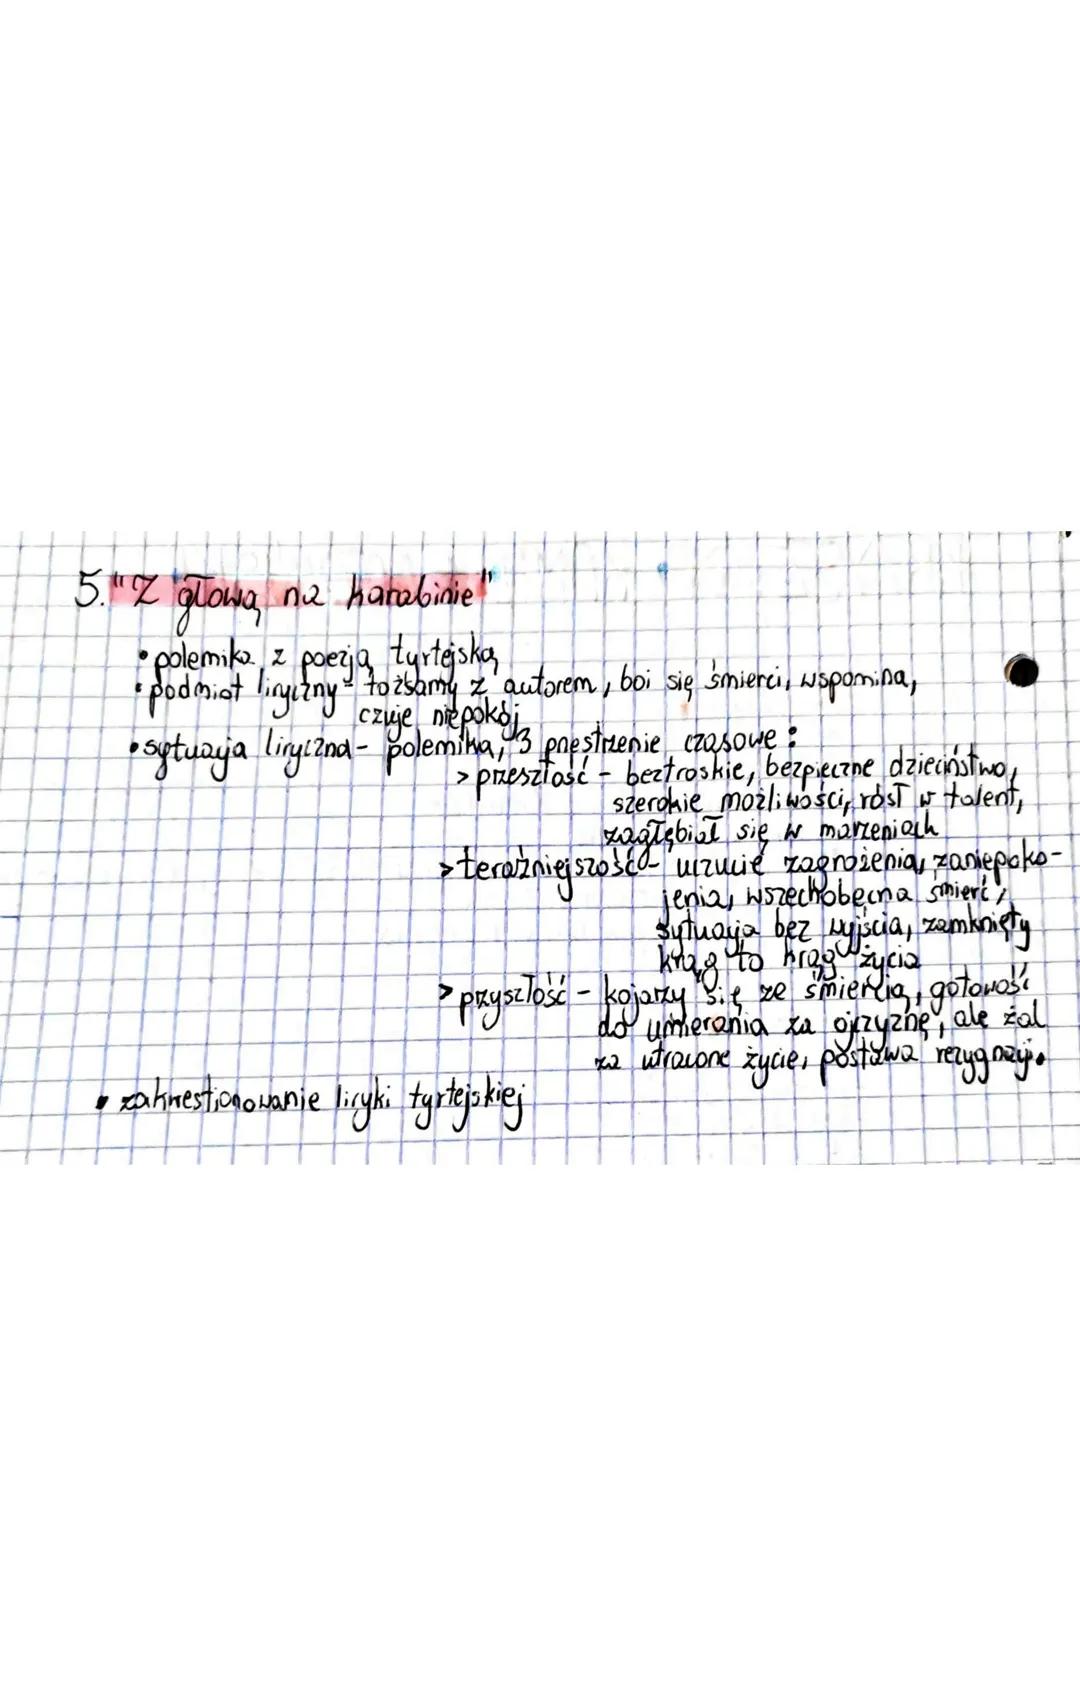 5. "Z głową na karabinie"
• polemika z poezją tyrtejską
• podmiot liryczny - tożsamy z autorem, boi się śmierci, wspomina,
czuje niepokój
• sytuacja liryczna - polemika, 3 przestrzenie czasowe:
> przeszłość - beztroskie, bezpieczne dzieciństwo,
szerokie możliwości, rósł w talent,
zagłębiał się w marzeniach
> teraźniejszość - uczucie zagrożenia, zaniepoko-
jenia, wszechobecna śmierć,
sytuacja bez wyjścia, zamknięty
krąg to krąg życia
> przyszłość - kojarzy się ze śmiercią, gotowość
do umierania za ojczyznę, ale żal
za utracone życie, postawa rezygnacji.
• zakwestionowanie liryki tyrtejskiej